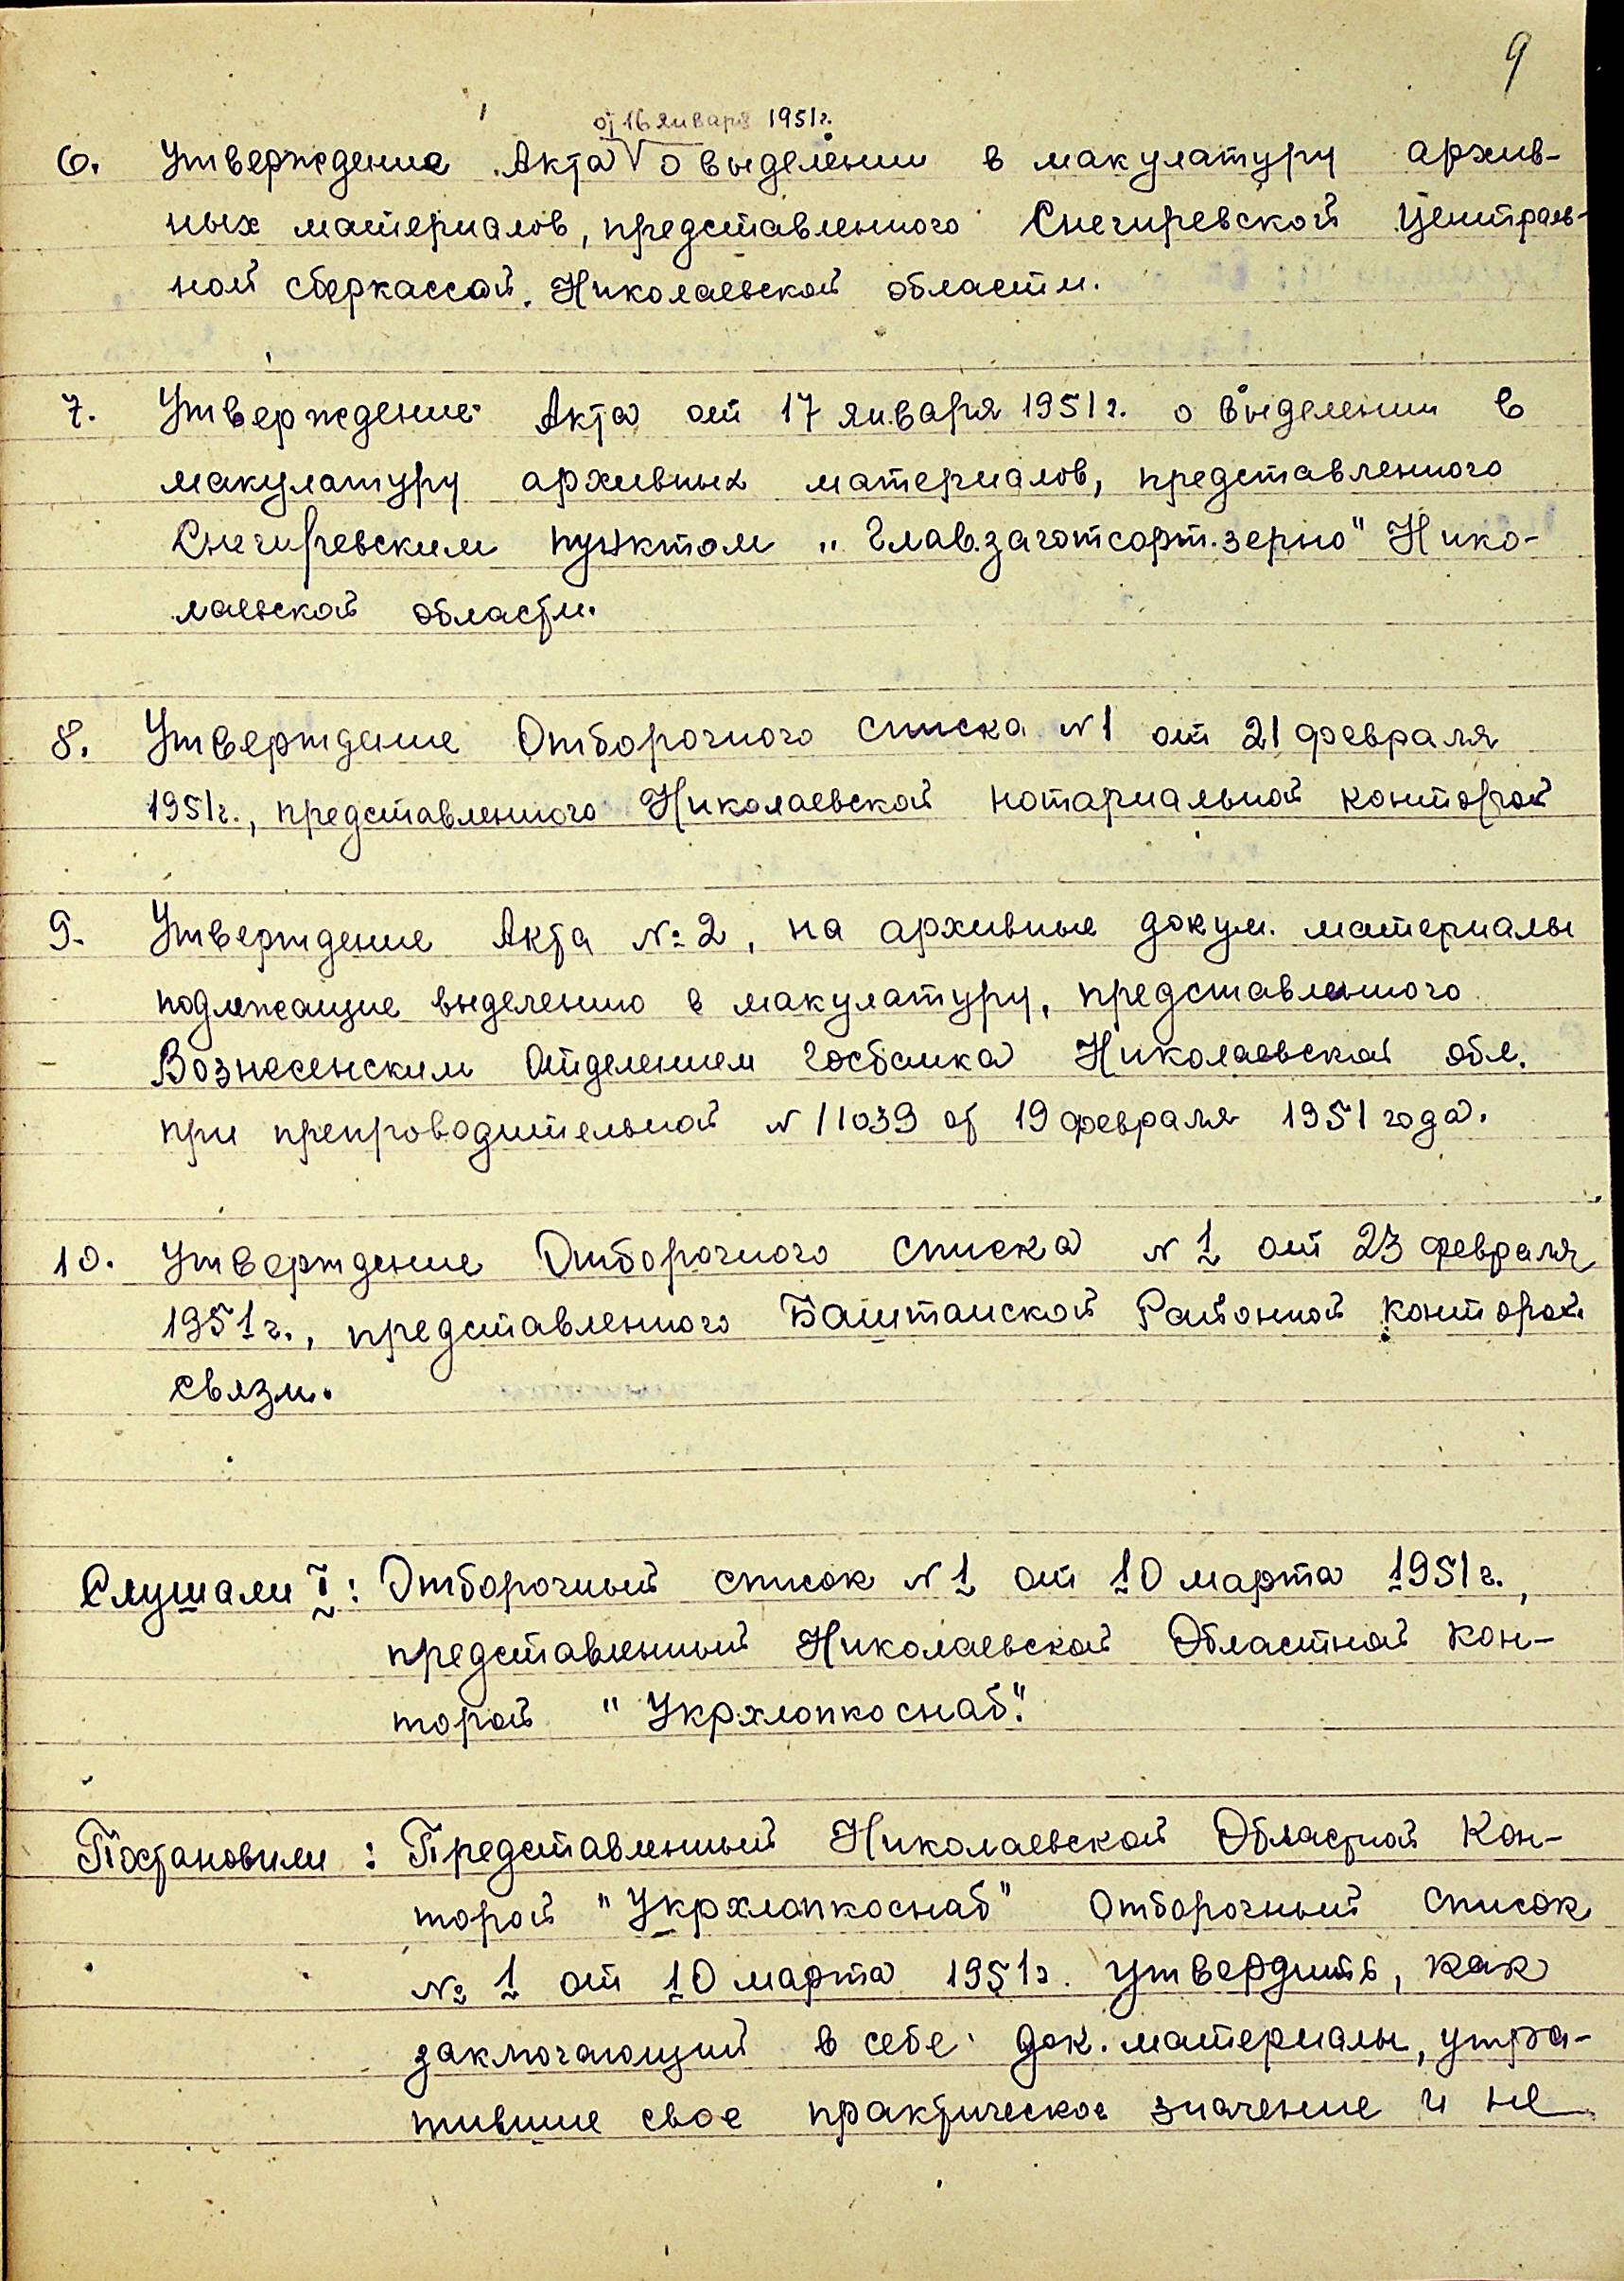 9
от 16 января 1951г.
6. Утверждение Акта о выделении в макулатуру архив-
ных материалов, представленного Снегиревской Централь-
ной сберкассой, Николаевской области.
7. Утверждение Акта от 17 января 1951г. о выделении в
макулатуру архивных материалов, представленного
Снегиревским пунктом „Глав.заготсорт.зерно" Нико-
лаевской области.
8. Утверждение Отборочного списка №1 от 21 февраля
1951г., представленного Николаевской нотариальной конторой
9. Утверждение Акта №2, на архивные докум. материалы
подлежащие выделению в макулатуру, представленного
Вознесенским Отделением Госбанка Николаевской обл.
при препроводительной № 11039 от 19 февраля 1951 года.
10. Утверждение Отборочного списка № 1 от 23 февраля
1951г., представленного Баштанской Районной конторой
связи.
Слушали I: Отборочный список №1 от 10 марта 1951г.,
представленный Николаевской Областной Кон-
торой "Укрхлопкоснаб".
Постановили: Представленный Николаевской Областной Кон-
торой "Укрхлопкоснаб" Отборочный список
№ 1 от 10 марта 1951г. утвердить, как
заключающий в себе док. материалы, утра-
тившие свое практическое значение и не